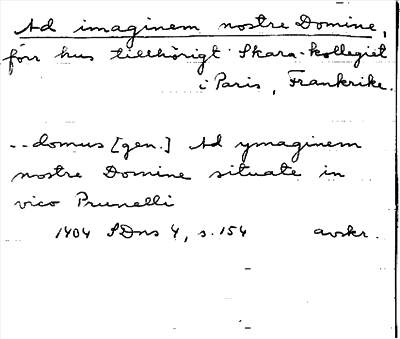 Ad imaginem nostre Domine,
förr hus tillhörigt Skara-kollegiet
i Paris, Frankrike.
--domus [gen.] Ad ymaginem
nostre Domine situate in
vico Prunelli
1404 SDns 4, s. 154 avskr.